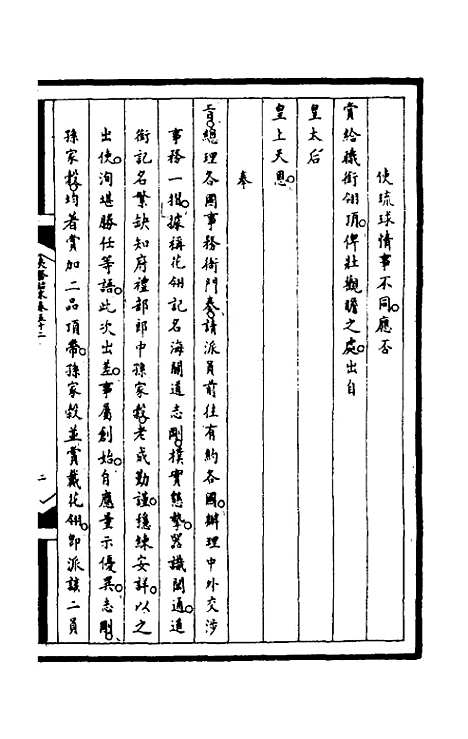 使琉球情事不同。應否
賞給織銜翎頂。俾壯觀瞻之處。出自
皇太后
皇上天恩。
奉
旨。總理各國事務衙門奏。請派員前往有約各國。辦理中外交涉
事務一摺。據稱花翎記名海關道志剛。樸實懇摯。器識閎通。道
銜記名繁缺知府禮部郎中孫家穀。老成勤謹。穩練安詳。以之
出使。洵堪勝任等語。此次出差。事屬創始。自應量示優異。志剛。
孫家穀。均著賞加二品頂帶。孫家穀並賞戴花翎。即派該二員
卷五十二
二